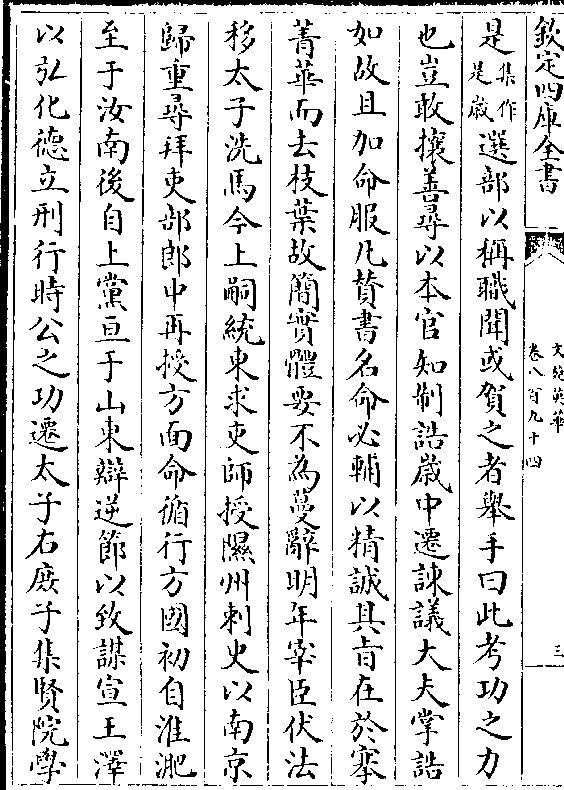 欽定四庫全書
文苑英華
卷八百九十四
三
是集作是歲選部以稱職聞或賀之者舉手曰此考功之力
也豈敢攘善尋以本官知制誥歲中遷諫議大夫掌誥
如故且加命服凡贊書名命必輔以精誠其旨在於搴
菁華而去枝葉故簡實體要不為蔓辭明年宰臣伏法
移太子洗馬今上嗣統東求吏師授隰州刺史以南京
歸重尋拜吏部郎中再授方面命循行方國初自淮淝
至于汝南後自上黨亘于山東辯逆節以致謀宣王澤
以弘化德立刑行時公之功遷太子右庶子集賢院學